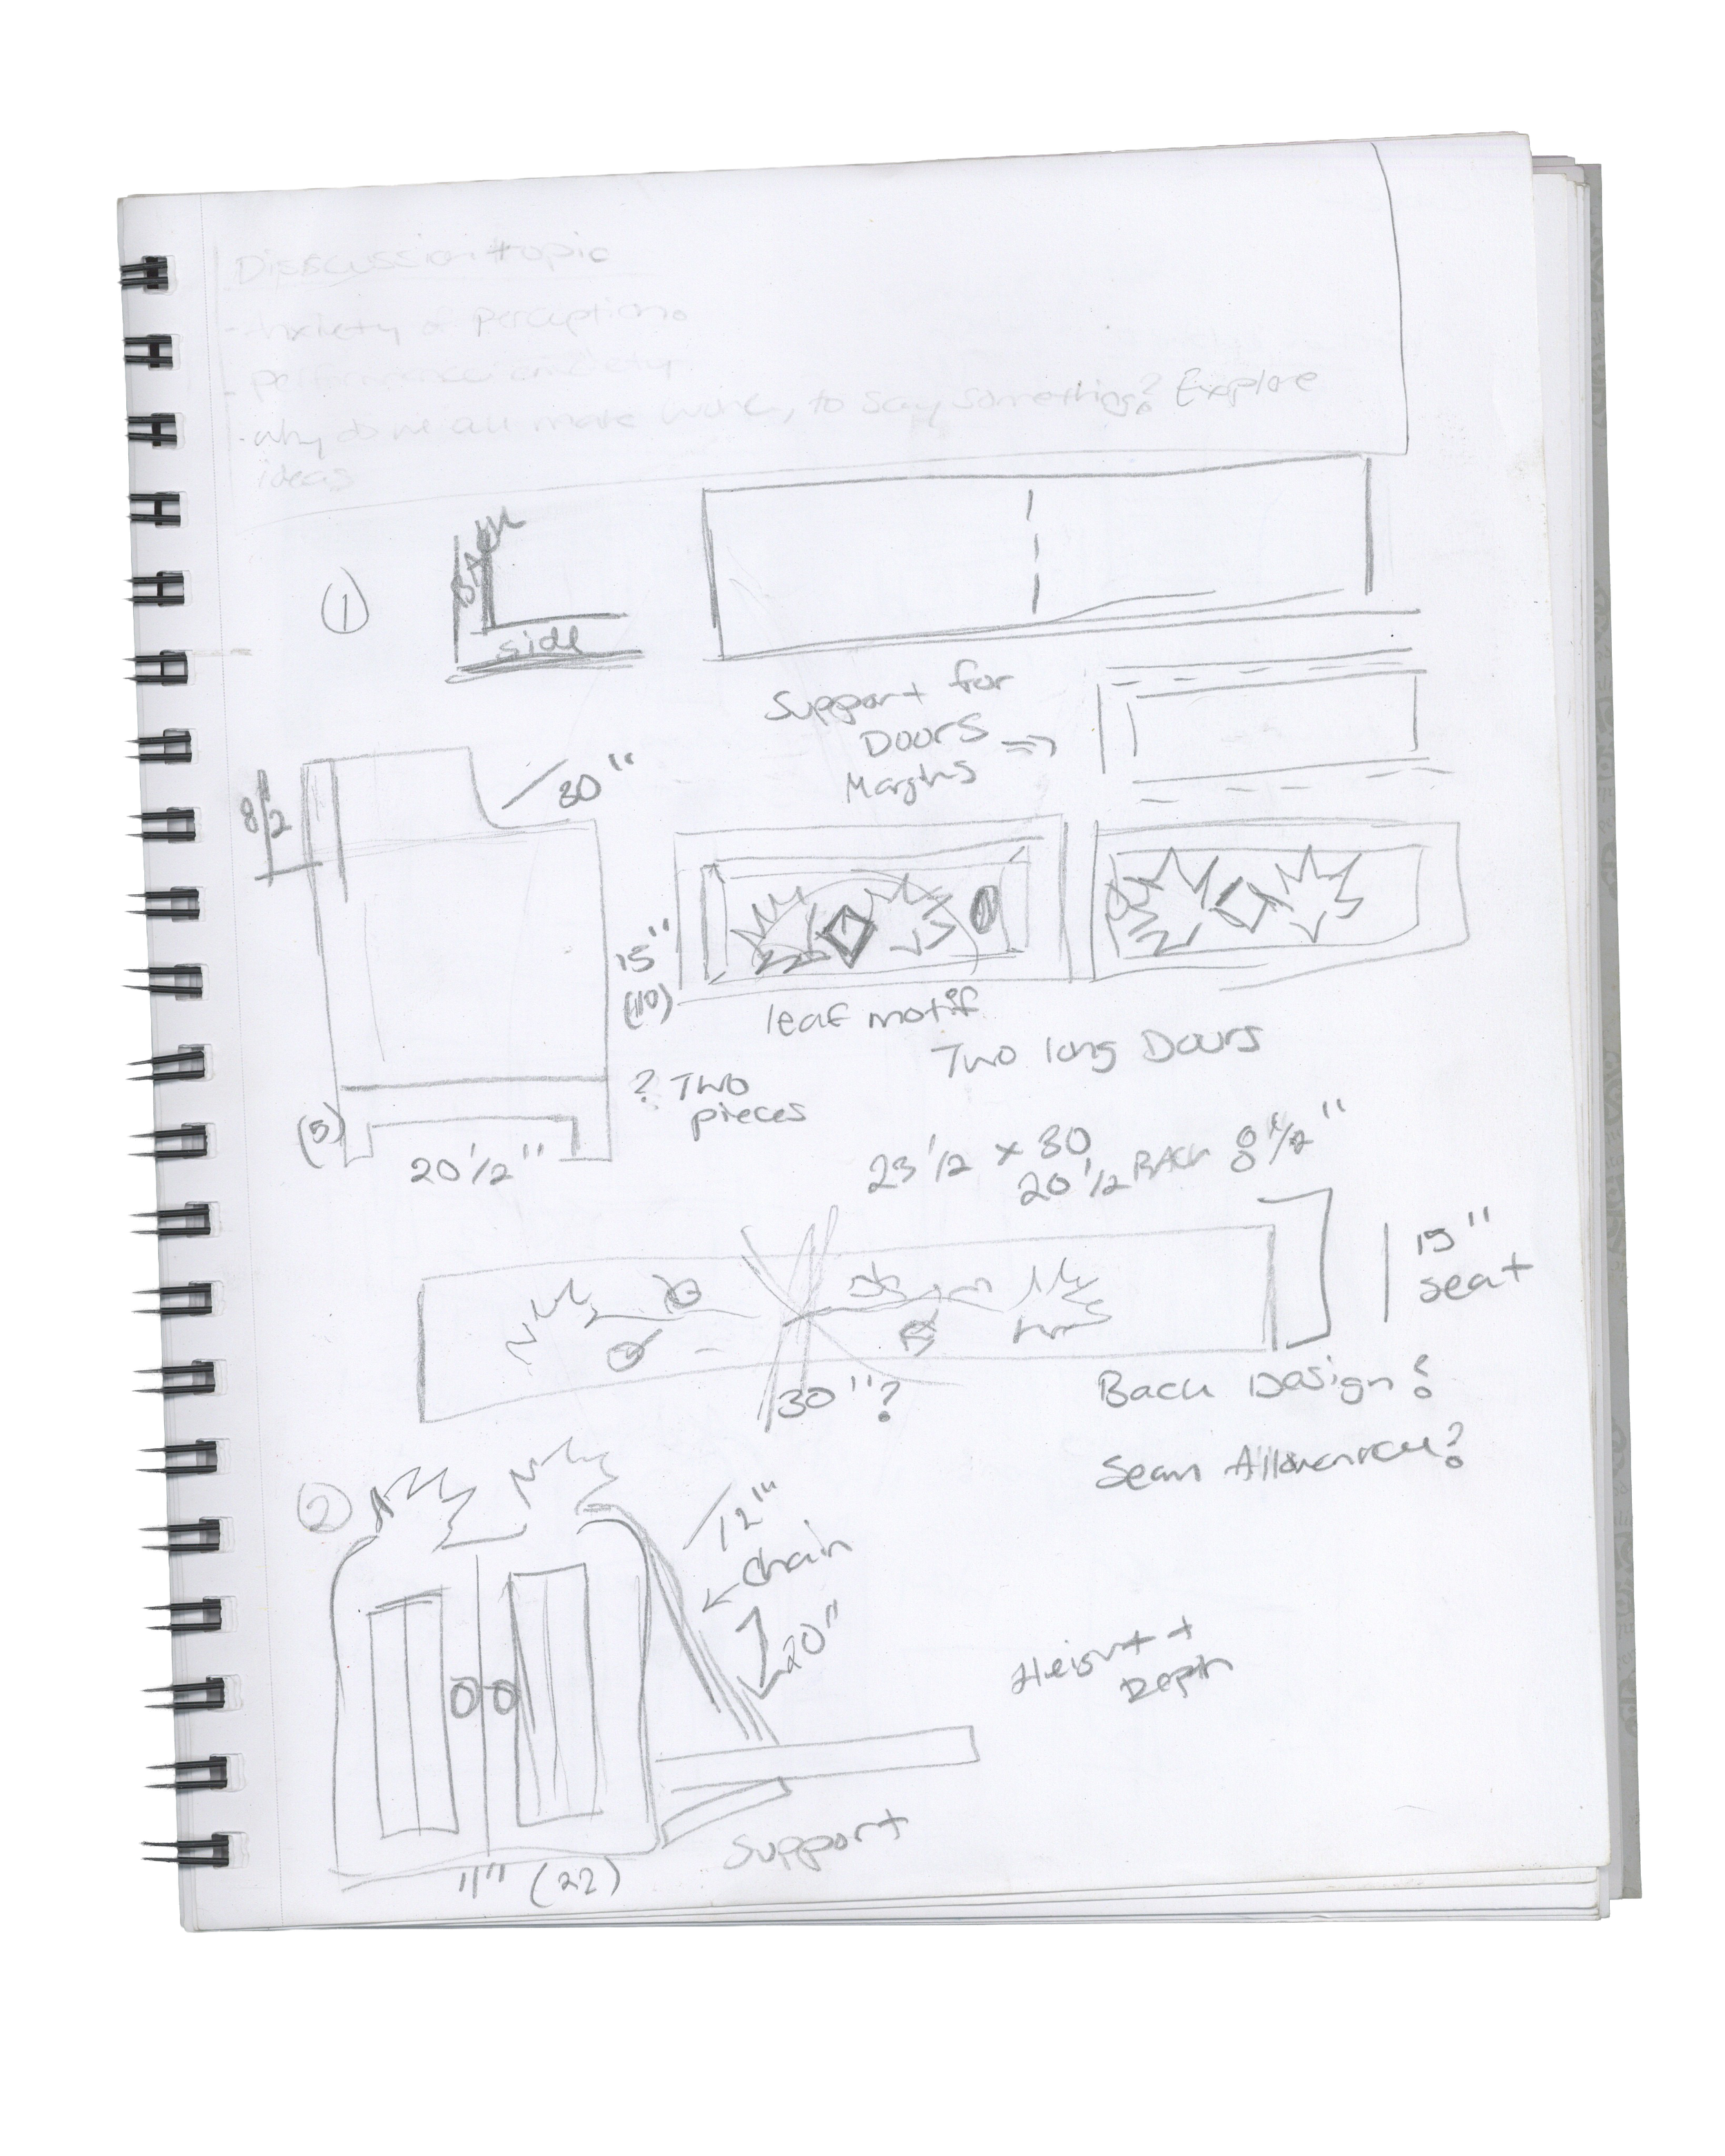 Disscussion topic
- Anxiety of perception.
- performance anxiety
- why do we all make work, to say something? Explore
ideas
1
BACK
side
Support for
Doors
Margins
30"
8 1/2
15"
(10)
leaf motif
Two long Doors
? Two
pieces
(5)
20 1/2"
23 1/2 x 30
20 1/2 BACK 8 1/2"
15"
seat
30"?
Back Design?
Seam Allowence?
2
12"
chain
20"
Height +
Depth
Support
11" (22)